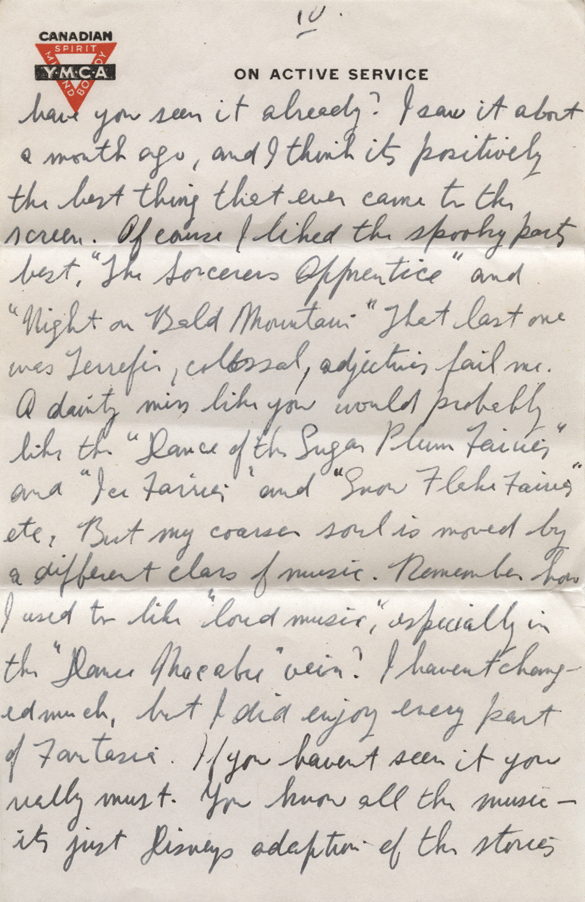 10.
CANADIAN
SPIRIT
MIND BODY
Y·M·C·A
ON ACTIVE SERVICE
have you seen it already? I saw it about
a month ago, and I think its positively
the best thing that ever came to the
screen. Of course I liked the spooky parts
best, "The Sorcerers Apprentice" and
"Night on Bald Mountain" That last one
was Terrefic, collossal, adjectives fail me.
A dainty miss like you would probably
like the "Dance of the Sugar Plum Fairies"
and "Ice Fairies" and "Snow Flake Fairies"
etc, But my coarser soul is moved by
a different class of music. Remember how
I used to like "loud music", especially in
the "Dance Macabre" vein? I havent chang-
ed much, but I did enjoy every part
of Fantasia. If you havent seen it you
really must. You know all the music –
its just Disneys adaption of the stories